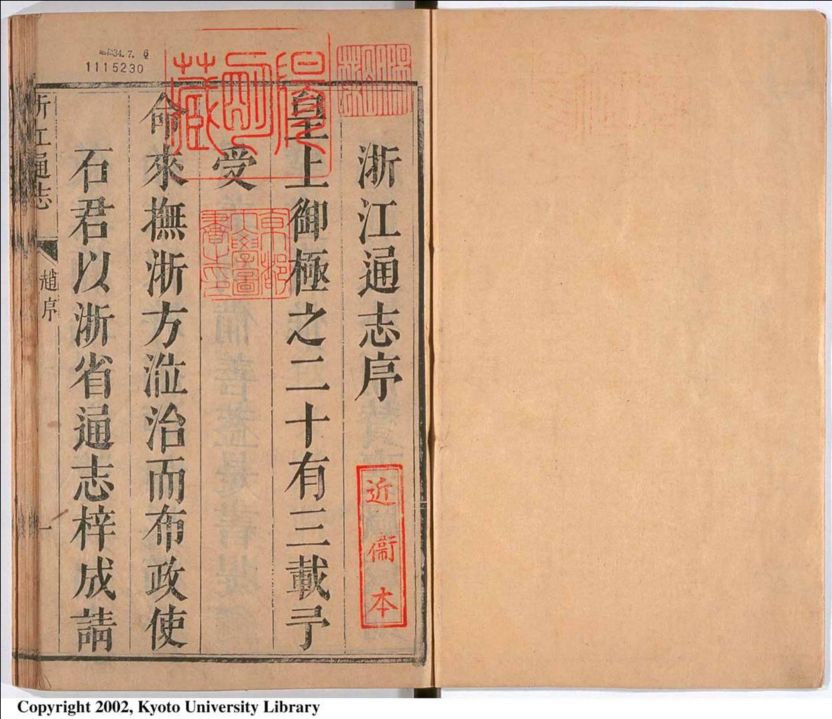 浙江通志序
皇上御極之二十有三載予
受
命來撫浙方涖治而布政使
石君以浙省通志梓成請
浙江通志
趙序
一
近衞本
京都
大學圖
書之印
藏
1115230
Copyright 2002, Kyoto University Library